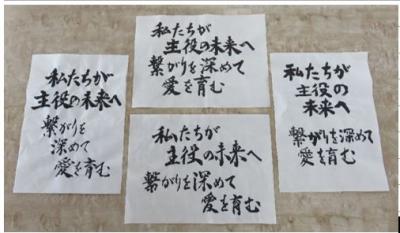 私たちが
主役の未来へ
繋がりを
深めて
愛を育む
私たちが
主役の未来へ
繋がりを深めて
愛を育む
私たちが
主役の未来へ
繋がりを深めて
愛を育む
私たちが
主役の
未来へ
繋がりを深めて
愛を育む